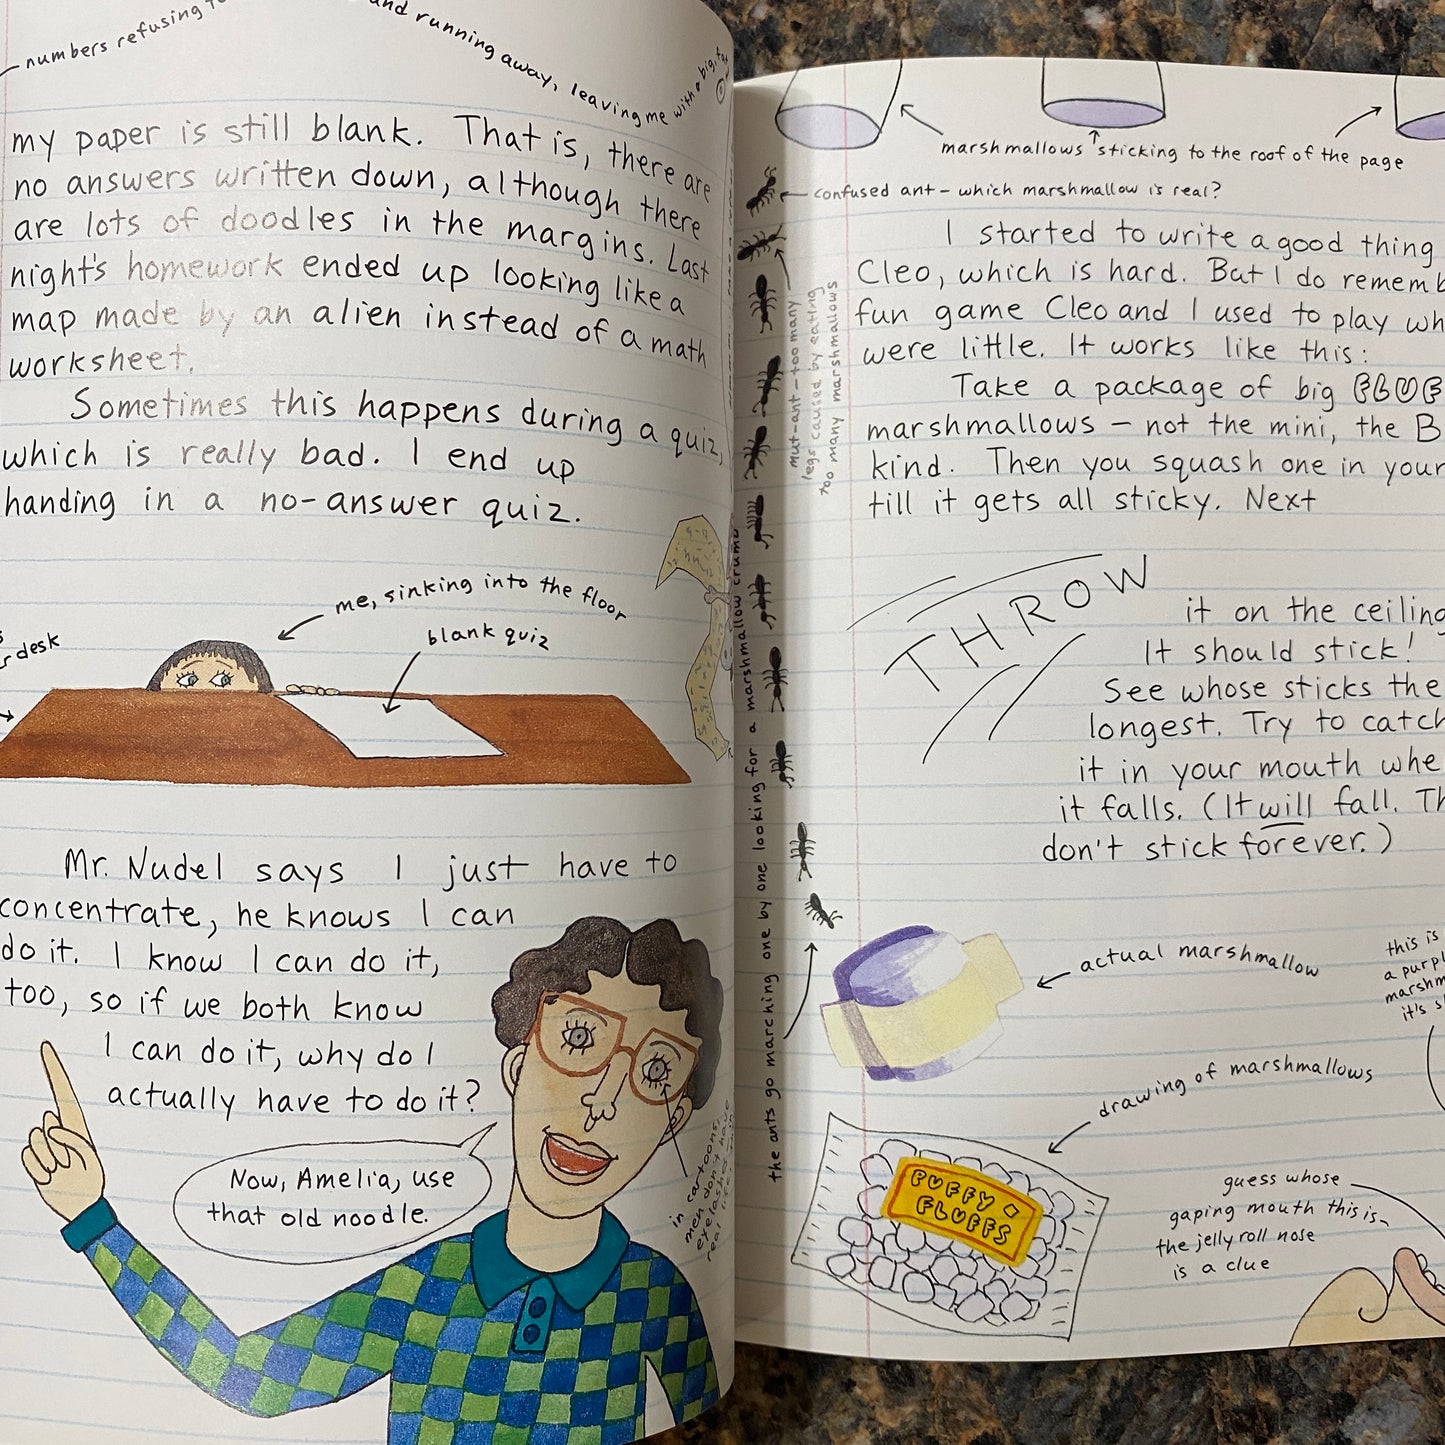 numbers refusing
and running away, leaving me with a big, fat
my paper is still blank. That is, there are
no answers written down, although there
are lots of doodles in the margins. Last
night's homework ended up looking like a
map made by an alien instead of a math
worksheet.
Sometimes this happens during a quiz,
which is really bad. I end up
handing in a no-answer quiz.
me, sinking into the floor
blank quiz
desk
Mr. Nudel says I just have to
concentrate, he knows I can
do it. I know I can do it,
too, so if we both know
I can do it, why do I
actually have to do it?
Now, Amelia, use
that old noodle.
in
cartoons,
men don't have
eyelashes
real life
the ants go marching one by one looking for a marshmallow crumb
marshmallows sticking to the roof of the page
confused ant - which marshmallow is real?
mut-ant - too many
legs caused by eating
too many marshmallows
I started to write a good thing
Cleo, which is hard. But I do rememb
fun game Cleo and I used to play wh
were little. It works like this:
Take a package of big
marshmallows - not the mini, the B
kind. Then you squash one in your
till it gets all sticky. Next
THROW
it on the ceiling
It should stick!
See whose sticks the
longest. Try to catch
it in your mouth whe
it falls. (It will fall. Th
don't stick forever.)
actual marshmallow
this is
a purpl
marshm
it's s
drawing of marshmallows
PUFFY
FLUFFS
guess whose
gaping mouth this is-
the jelly roll nose
is a clue